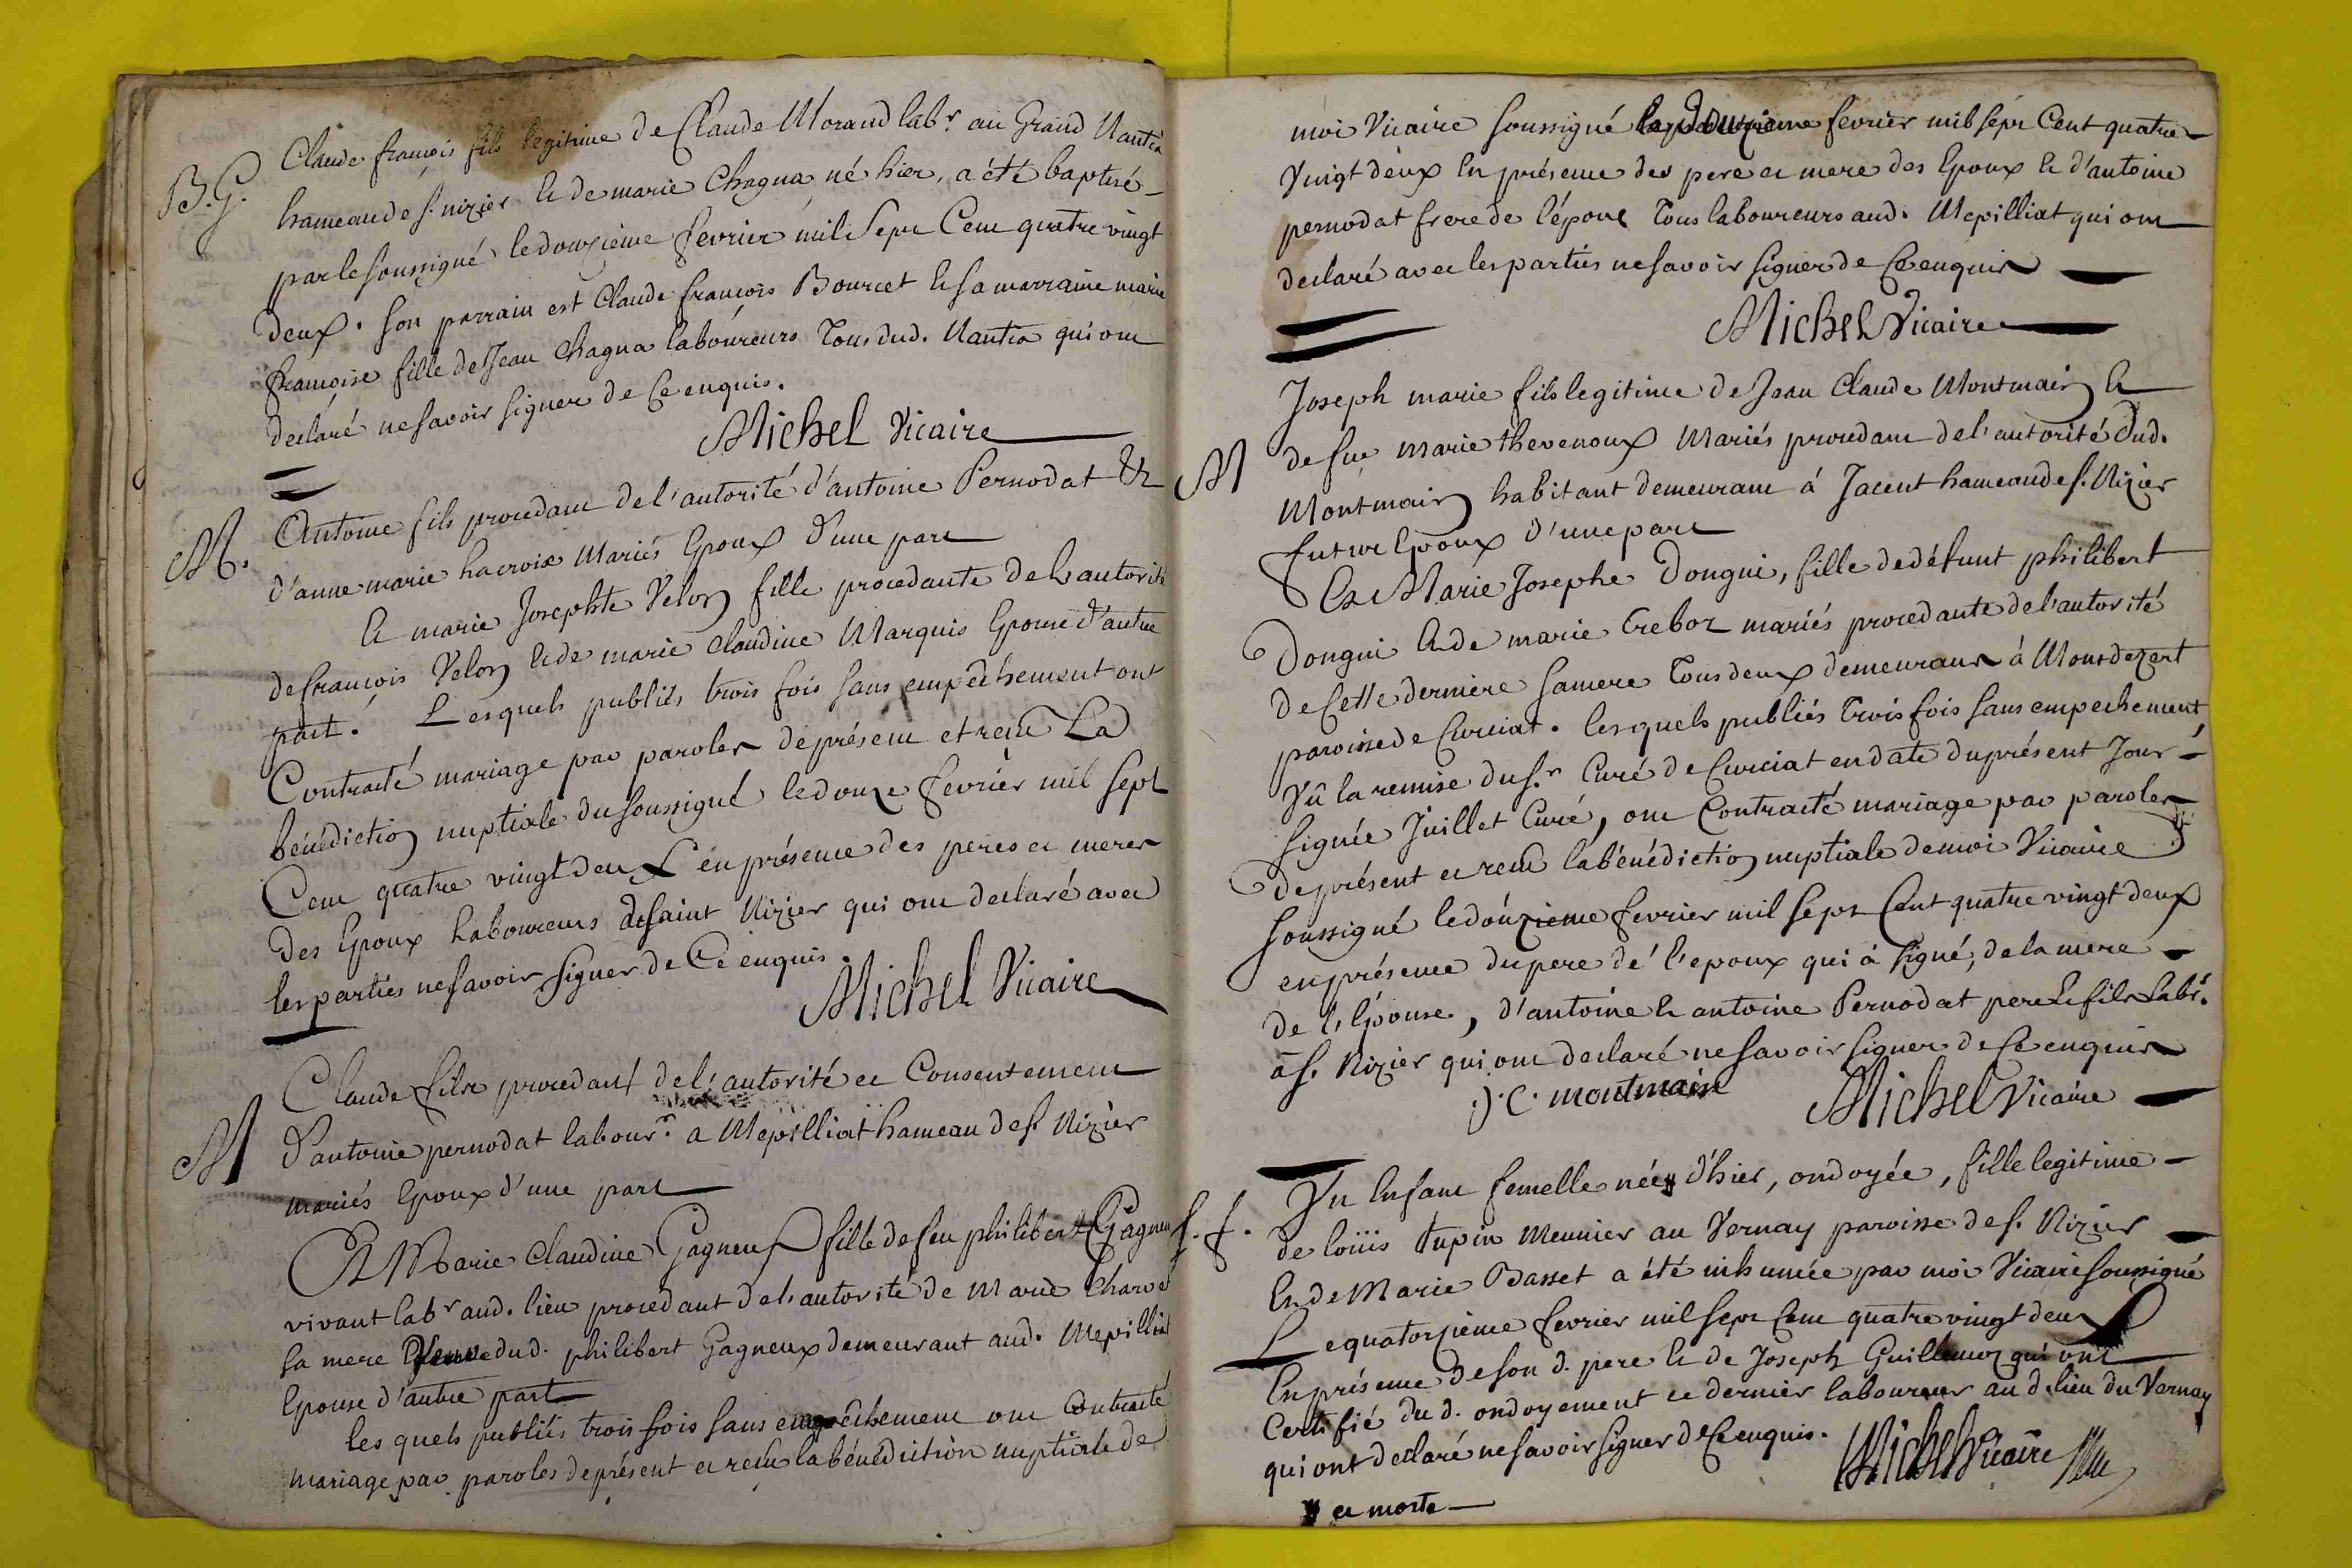 B.G.
Claude françois fils legitime de Claude Morand labr. au Grand Nantia
hameau de st. nizier & de marie Chagna né hier, a été baptisé
par le soussigné le douzieme fevrier mil sept Cent quatre vingt
deux. son parrain est Claude françois Bourcet & sa marraine marie
françoise fille de Jean Chagna laboureurs tous dud. Nantia qui ont
declaré ne savoir signer de Ce enquis.
Michel Vicaire
M.
Antoine fils procedant de l'autorité d'antoine Pernodat &
d'anne marie Lacroix Mariés Epoux d'une part
& marie Josephte Velon fille procedante de l'autorité
de françois Velon & de marie Claudine Marquis Epouse d'autre
part. Lesquels publiés trois fois sans empêchement ont
Contracté mariage par paroles de présent et reçu La
bénédiction nuptiale du soussigné le douze fevrier mil sept
Cent quatre vingt deux en présence des peres et meres
des Epoux Laboureurs à saint Nizier qui ont declaré avec
les parties ne savoir signer de Ce enquis.
Michel Vicaire
M
Claude fils procedant de l'autorité et Consentement
d'antoine pernodat labourr. a Mepilliat hameau de st Nizier
mariés Epoux d'une part
Et Marie Claudine Gagneux fille de feu philibert Gagneux
vivant labr aud. lieu procedant de l'autorité de Marie
sa mere Veuve dud. philibert Gagneux demeurant aud. Mepilliat
Epouse d'autre part
les quels publiés trois fois sans empêchement ont Contracté
mariage par paroles de présent et reçu la bénédiction nuptiale de
moi Vicaire soussigné le douzieme fevrier mil sept Cent quatre
Vingt deux En présence des pere et mere des Epoux & d'antoine
pernodat frere de l'époux tous laboureurs aud. Mepilliat qui ont
declaré avec les parties ne savoir signer de Ce enquis
Michel Vicaire
M
Joseph marie fils legitime de Jean Claude Montmain &
de fue marie thevenoux Mariés procedant de l'autorité dud.
Montmain habitant demeurant à Jacent hameau de st. Nizier
futur Epoux d'une part
Et Marie Josephe Dongui, fille de défunt philibert
Dongui & de marie Creboz mariés procedante de l'autorité
de Cette derniere sa mere tous deux demeurans à Montdezert
paroisse de Curciat. lesquels publiés trois fois sans empechement,
Vû la remise du sr. Curé de Curciat en date du présent Jour
signée Juillet Curé, ont Contracté mariage par paroles
de présent et reçu la bénédiction nuptiale de moi Vicaire
soussigné le douzieme fevrier mil sept Cent quatre vingt deux
en présence du pere de l'epoux qui à signé, de la mere
de l'Epouse, d'antoine & antoine Pernodat pere & fils Labr.
à st. Nizier qui ont declaré ne savoir signer de Ce enquis
J. C. montmain Michel Vicaire
Un Enfant femelle née d'hier, ondoyée, fille legitime
de loüis tupin Meunier au Vernay paroisse de st. Nizier
En de Marie Basset a été inhumée par moi Vicaire soussigné
Le quatorzieme fevrier mil sept Cent quatre vingt deux
En présence de son d. pere & de Joseph Guillemoz qui ont
Certifié du d. ondoyement ce dernier laboureur au d. lieu du Vernay
qui ont declaré ne savoir signer de Ce enquis.
Michel Vicaire
et morte